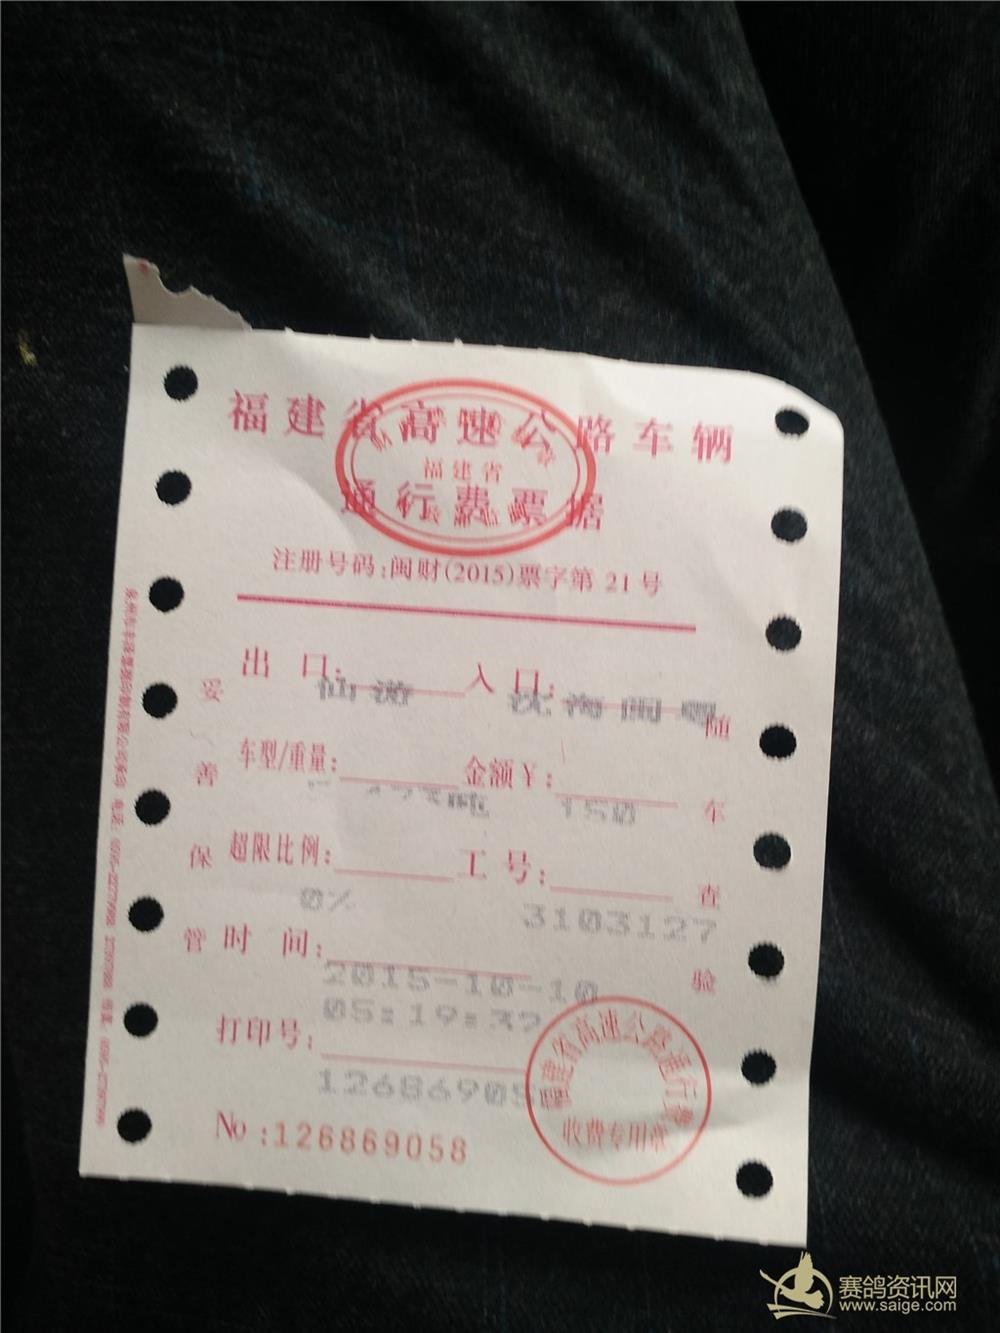 福建省高速公路车辆
福建省
通行费票据
注册号码:闽财(2015)票字第 21 号
出 口: 仙游 入 口: 沈海闽粤
车型/重量: 吨 金额￥: 150
超限比例: 0% 工 号: 3103127
时 间: 2015-10-10
05:19:32
打印号: 126869058
No :126869058
妥善保管
随车查验
福建省高速公路通行费
收费专用章
赛鸽资讯网
www.saige.com